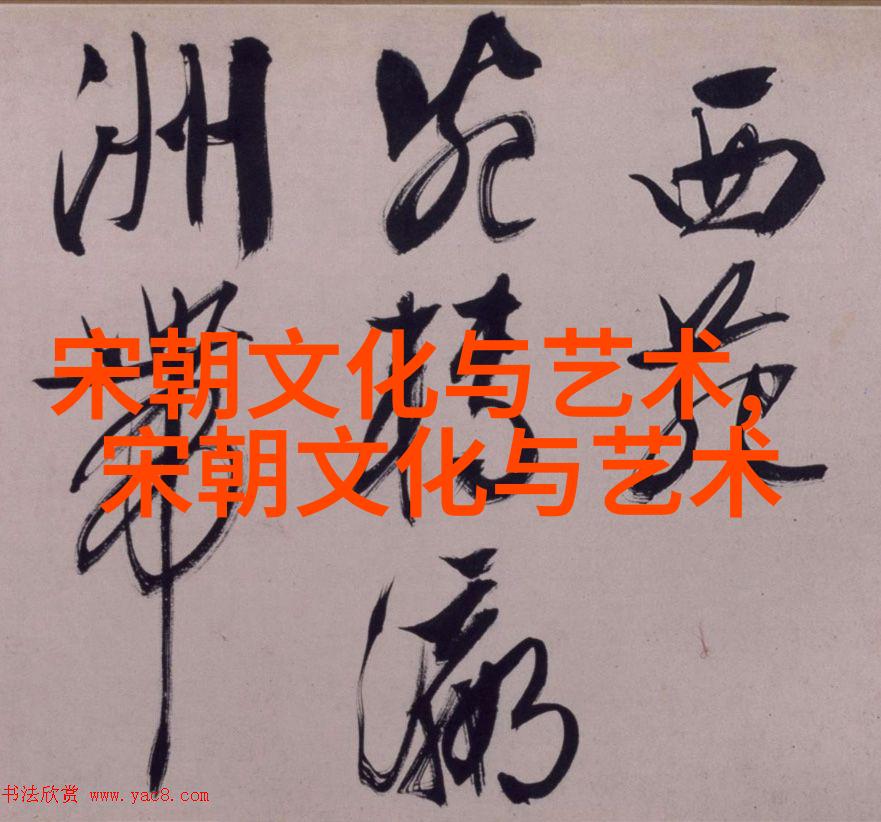 宋朝文化与艺术,
宋朝文化与艺术
西
瀛
洲帶
书法欣赏 www.yac8.com